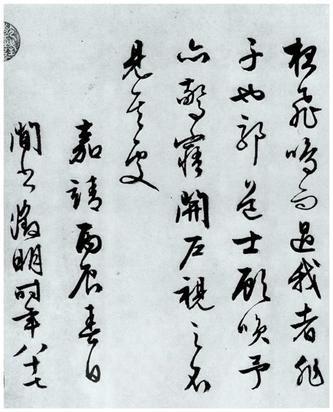 夜飛鳴而過我者非
子也耶道士顧咲予
亦驚寤開戶視之不
見其處
嘉靖丙辰春日
閒書徵明時年八十七